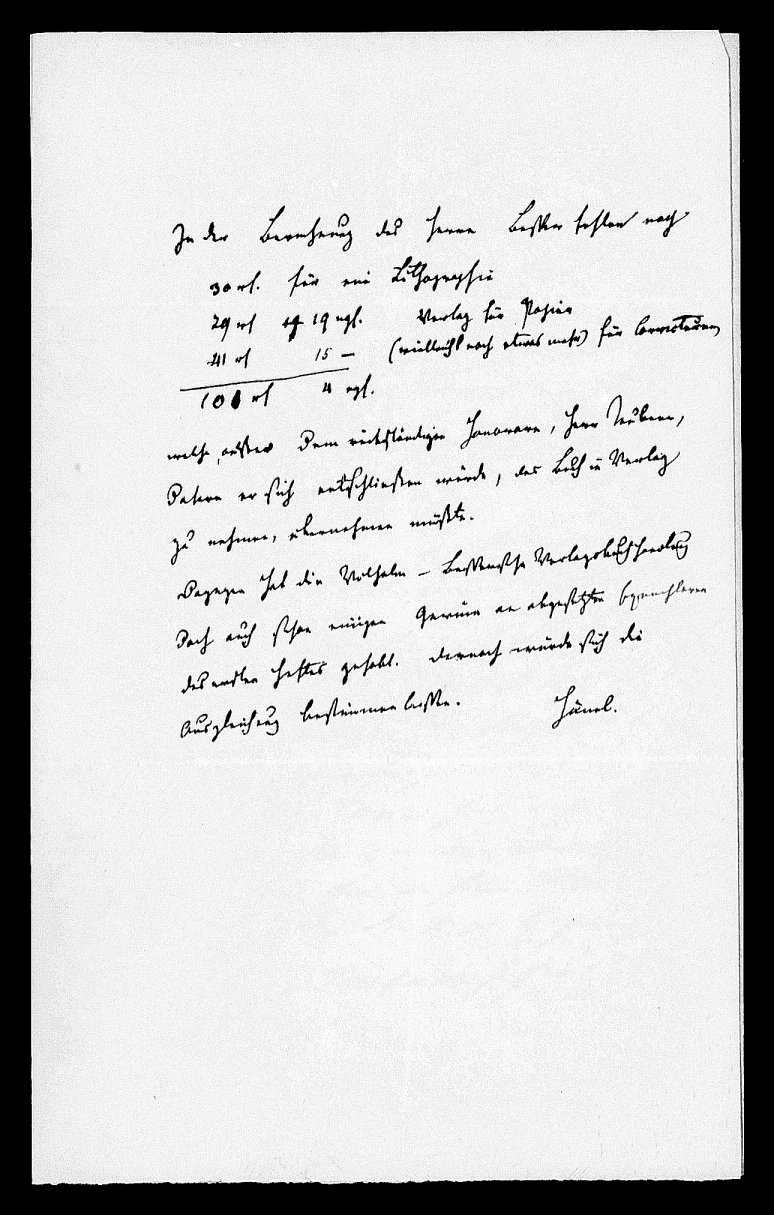 In der Berechnung des Herrn Becker fehlen noch
30 rf. für eine Lithographie
29 rf 19 ngl. Verlag für Papier
41 rf 15 — (vielleicht noch etwas mehr) für Correcturen
101 rf 4 ngl.
welche, außer dem rückständigen Honorare, Herr Teubner,
dafern er sich entschließen würde, das Buch in Verlag
zu nehmen, übernehmen müßte.
Dagegen hat die Verlagsbuchhandlung
doch auch schon einigen Gewinn an abgesetzten Exemplaren
des ersten Heftes gehabt. Darnach würde sich die
Ausgleichung bestimmen lassen. Hänel.